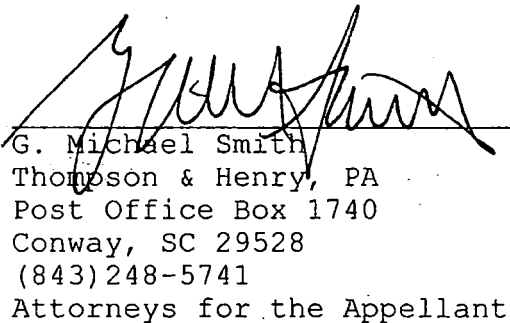 G. Michael Smith
Thompson & Henry, PA
Post Office Box 1740
Conway, SC 29528
(843)248-5741
Attorneys for the Appellant